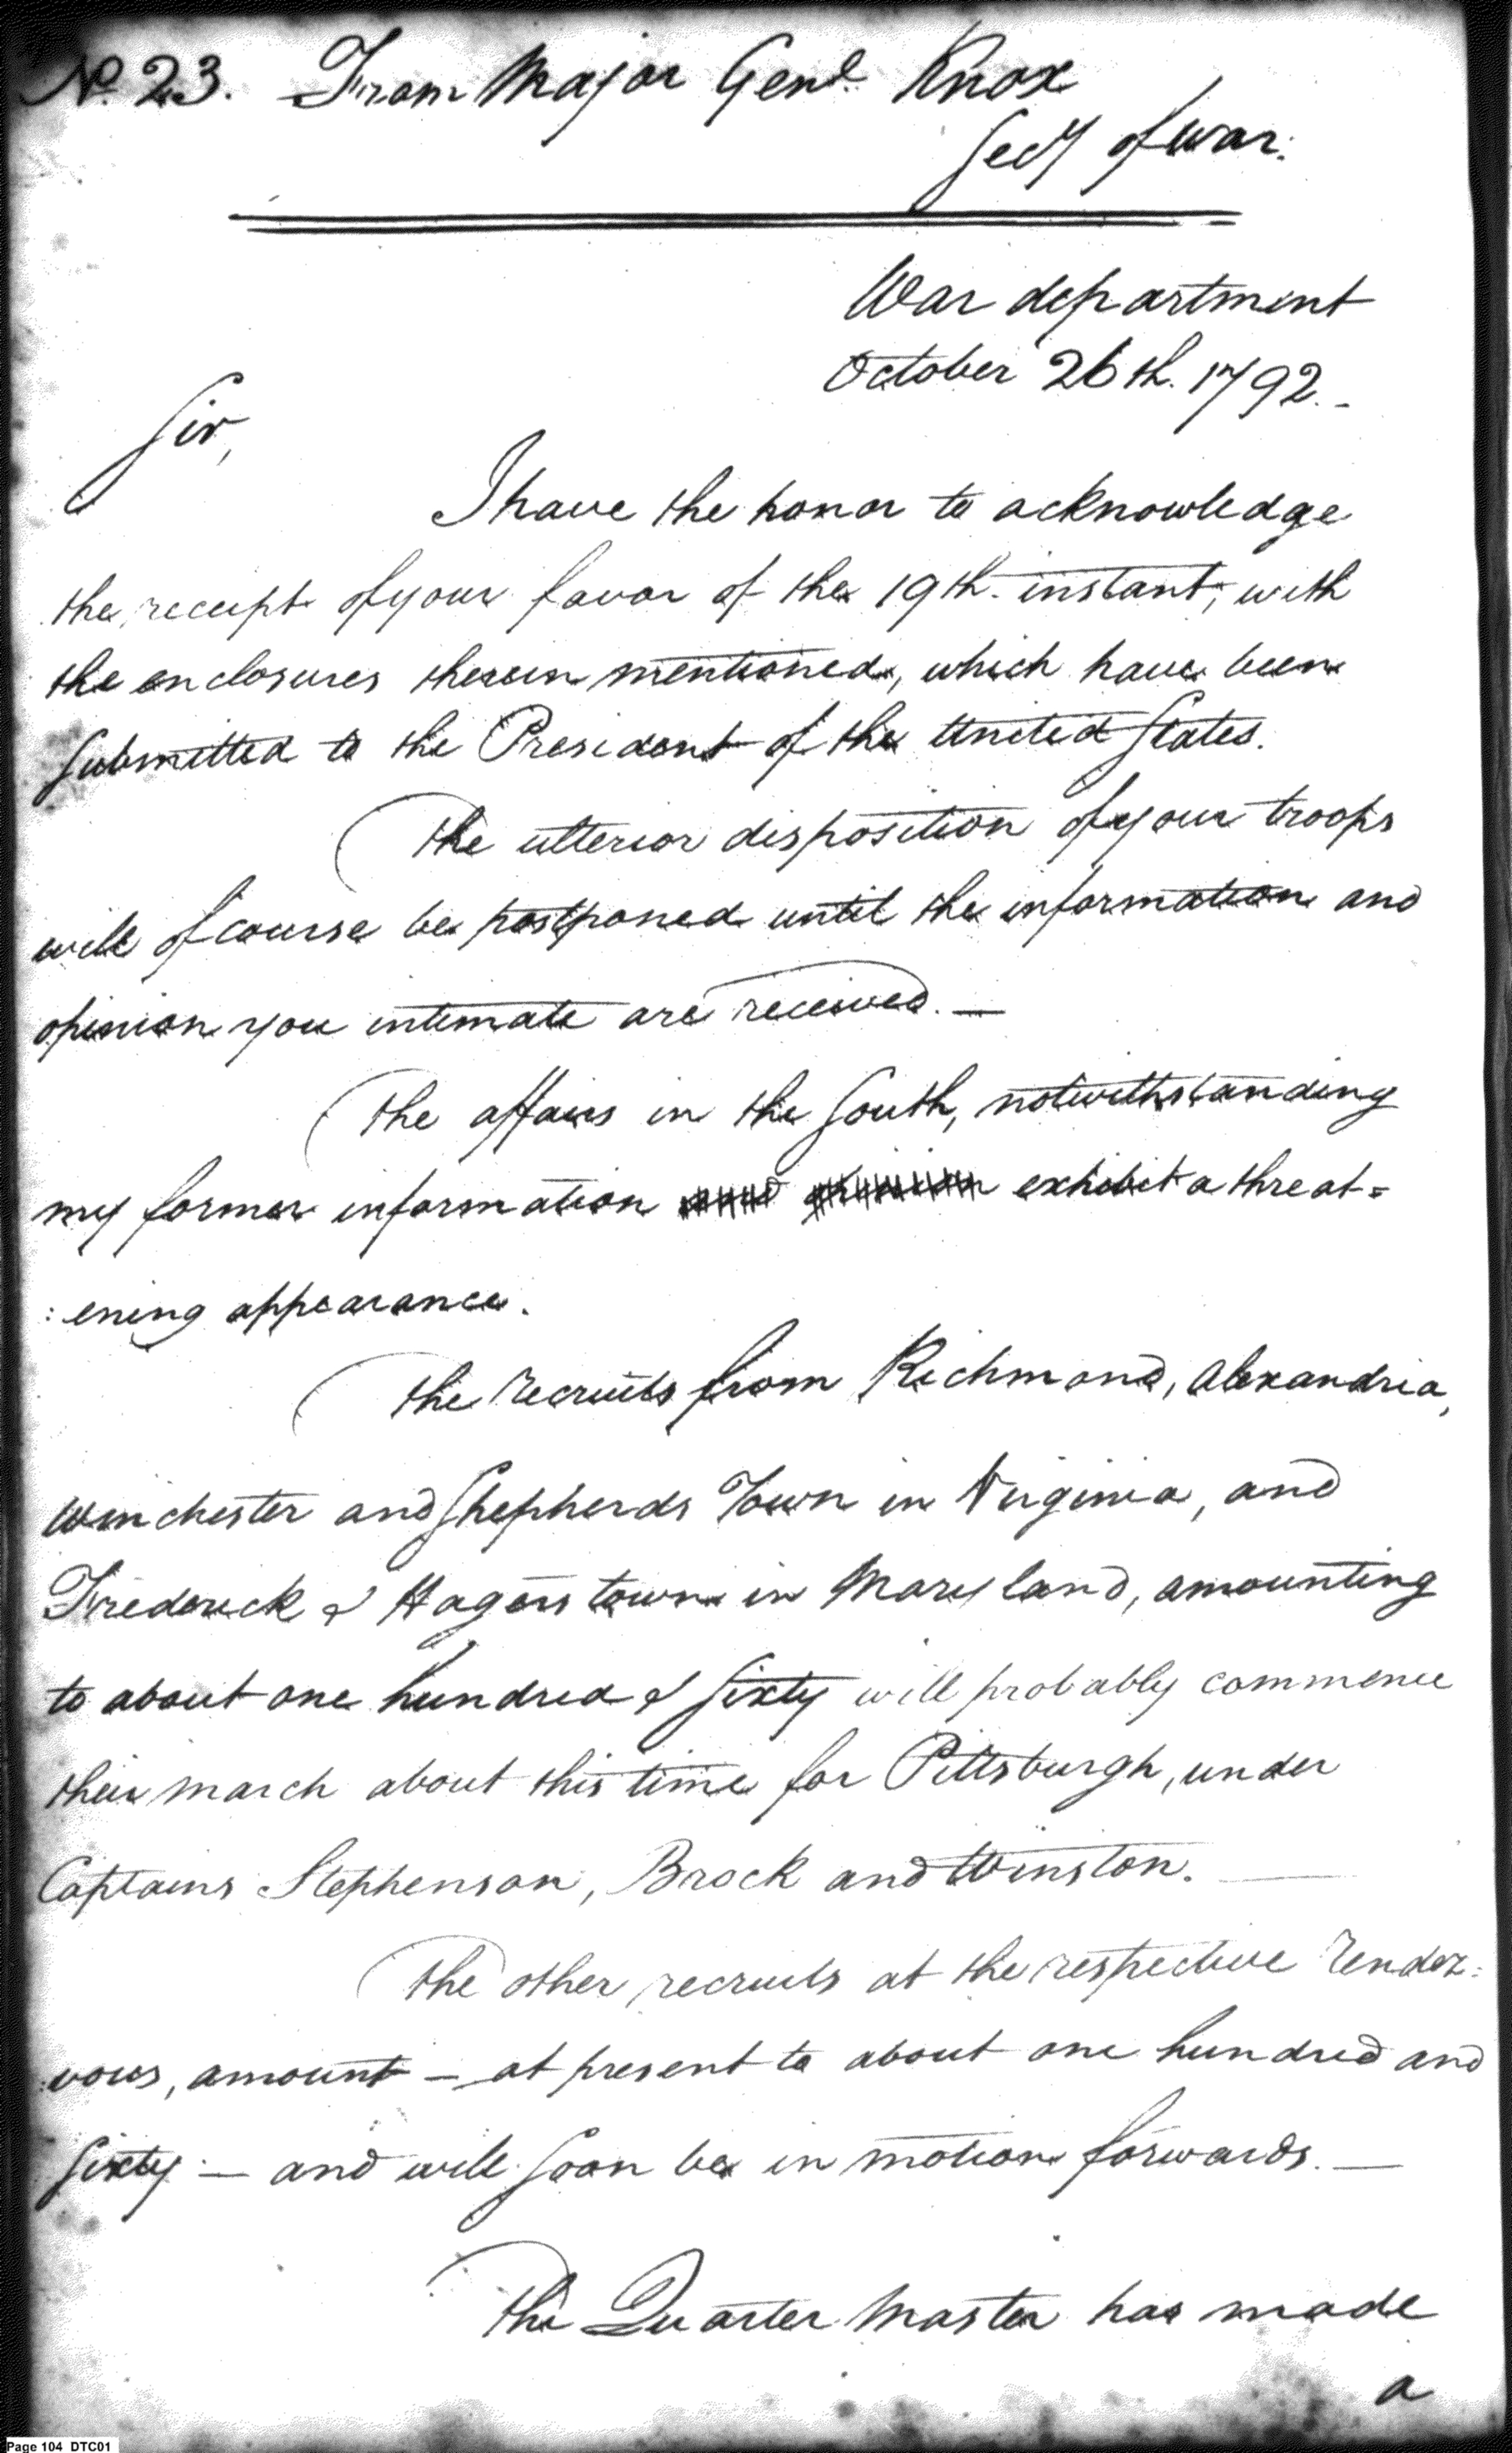 No. 23. From Major Genl. Knox
Secy of war.
War department
October 26th. 1792.-
Sir,
I have the honor to acknowledge
the receipt of your favor of the 19th. instant, with
the enclosures therein mentioned, which have been
Submitted to the President of the United States.
The ulterior disposition of your troops
will of course be postponed until the information and
opinion you intimate are received. —
The affairs in the South, notwithstanding
my former information exhibit a threat=
:ening appearance.
The recruits from Richmond, Alexandria,
Winchester and Shepherds Town in Virginia, and
Frederick & Hagers town in Maryland, amounting
to about one hundred & Sixty will probably commence
their march about this time for Pittsburgh, under
Captains Stephenson, Brock and Winston. —
The other recruits at the respective rendez:
:vous, amount — at present to about one hundred and
Sixty — and will soon be in motion forwards. —
The Quarter Master has made
a
Page 104 DTC01